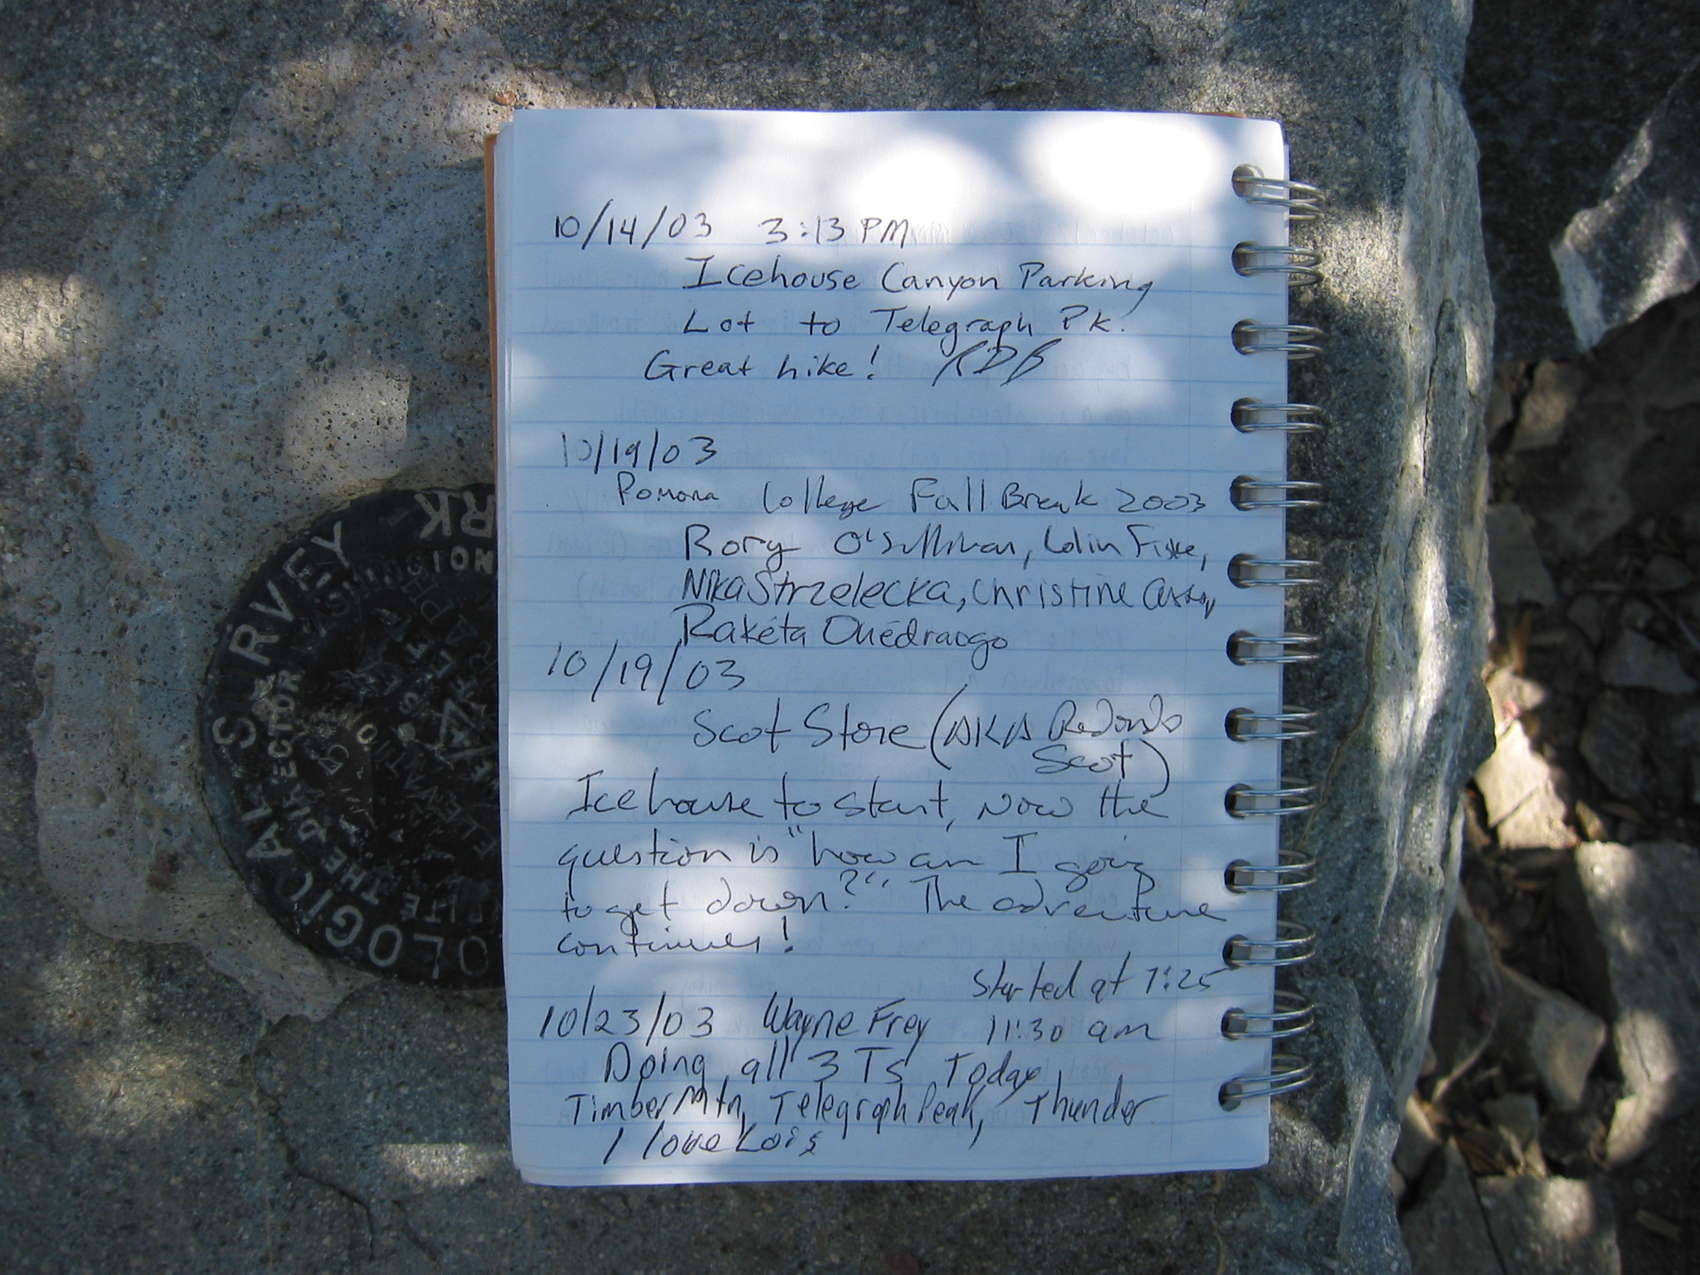 10/14/03 3:13 PM
Icehouse Canyon Parking
Lot to Telegraph Pk.
Great hike! RDB
10/19/03
Pomona College Fall Break 2003
Rory O'Sullivan, Colin Fiske,
Nika Strzelecka, Christine
Rakéta Ouédraogo
10/19/03
Scot Store (AKA Redondo
Scot)
Icehouse to start, Now the
question is "how am I going
to get down?" The adventure
continues!
Started at 7:25
10/23/03 Wayne Frey 11:30 am
Doing all 3 Ts Today
Timber Mtn, Telegraph Peak, Thunder
I love Lois
S RVEY
DIRECTOR